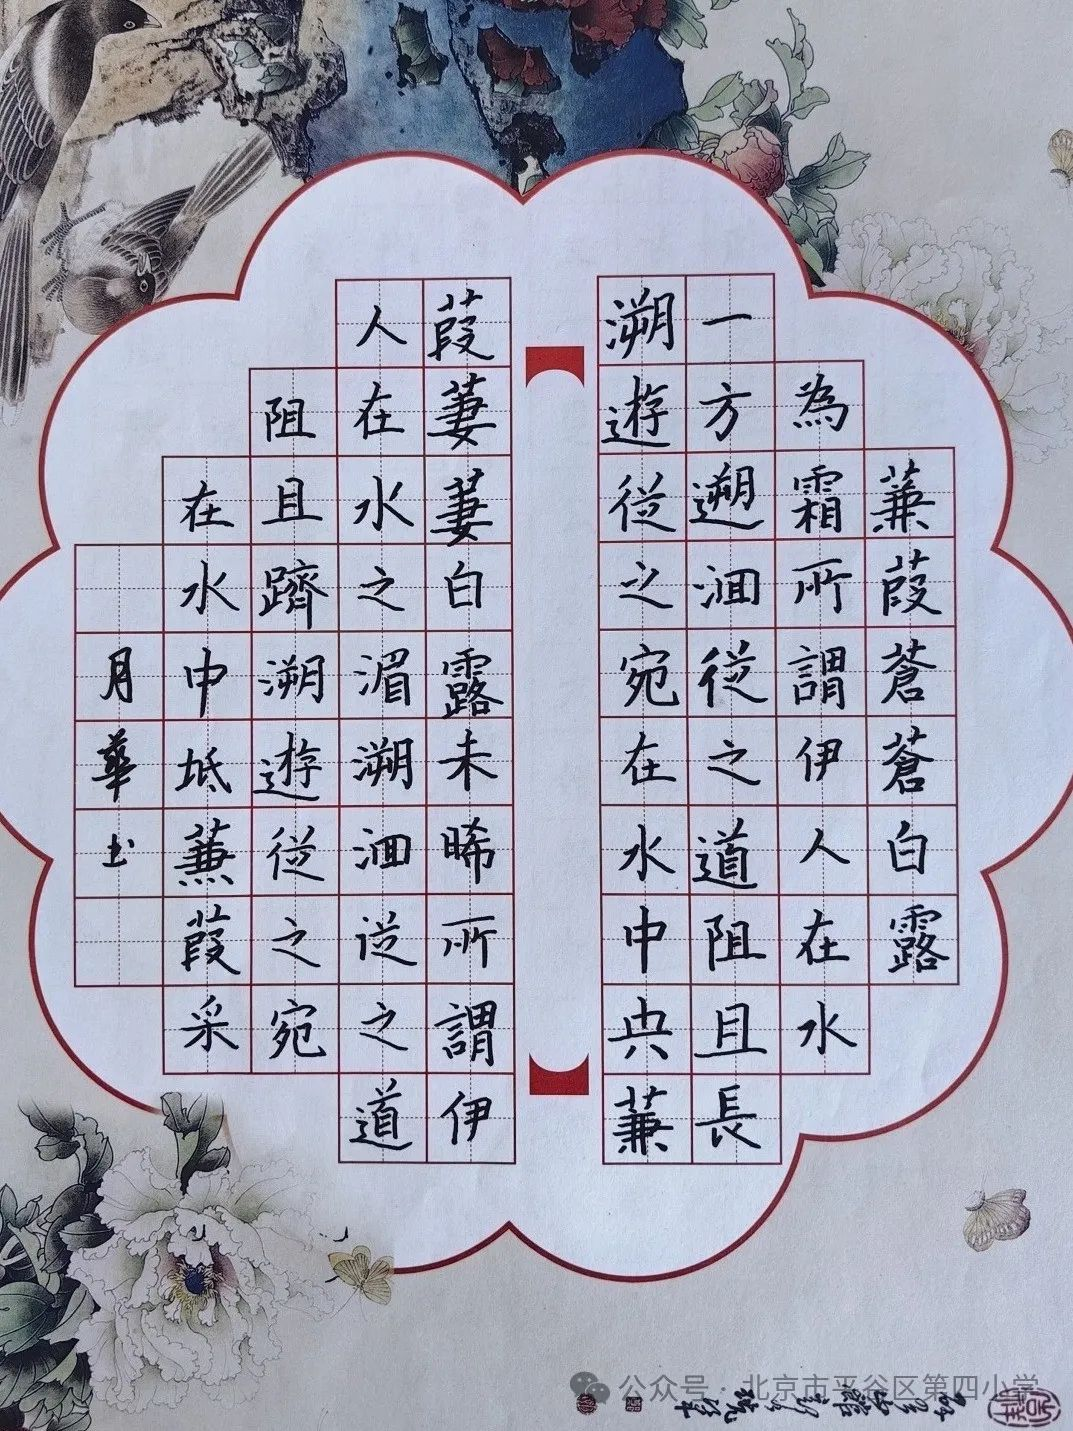 蒹葭蒼蒼白露
為霜所謂伊人在水
一方遡洄從之道阻且長
溯遊從之宛在水中央蒹
葭萋萋白露未晞所謂伊
人在水之湄溯洄從之道
阻且躋溯遊從之宛
在水中坻蒹葭采
月華书
公众号·北京市平谷区第四小学